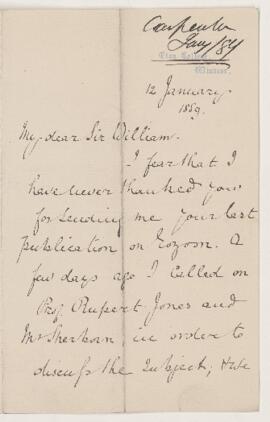 Carpenter
Jany/89
Eton College
Windsor.
12 January.
1889.
My dear Sir William.
I fear that I
have never thanked you
for sending me your last
publication on Eozoon. A
few days ago I called on
Prof. Rupert Jones and
Mr Sherborn, in order to
discuss the subject; &